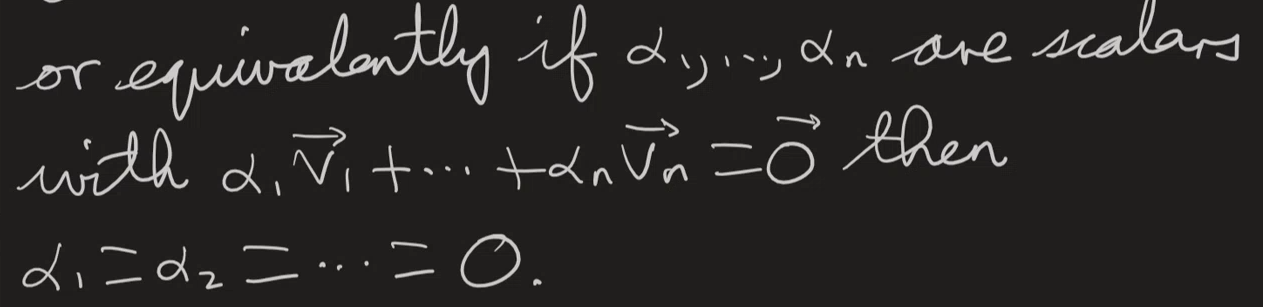 or equivalently if α₁,..., αₙ are scalars
with α₁v⃗₁ + ··· + αₙv⃗ₙ = 0⃗ then
α₁ = α₂ = ··· = 0.